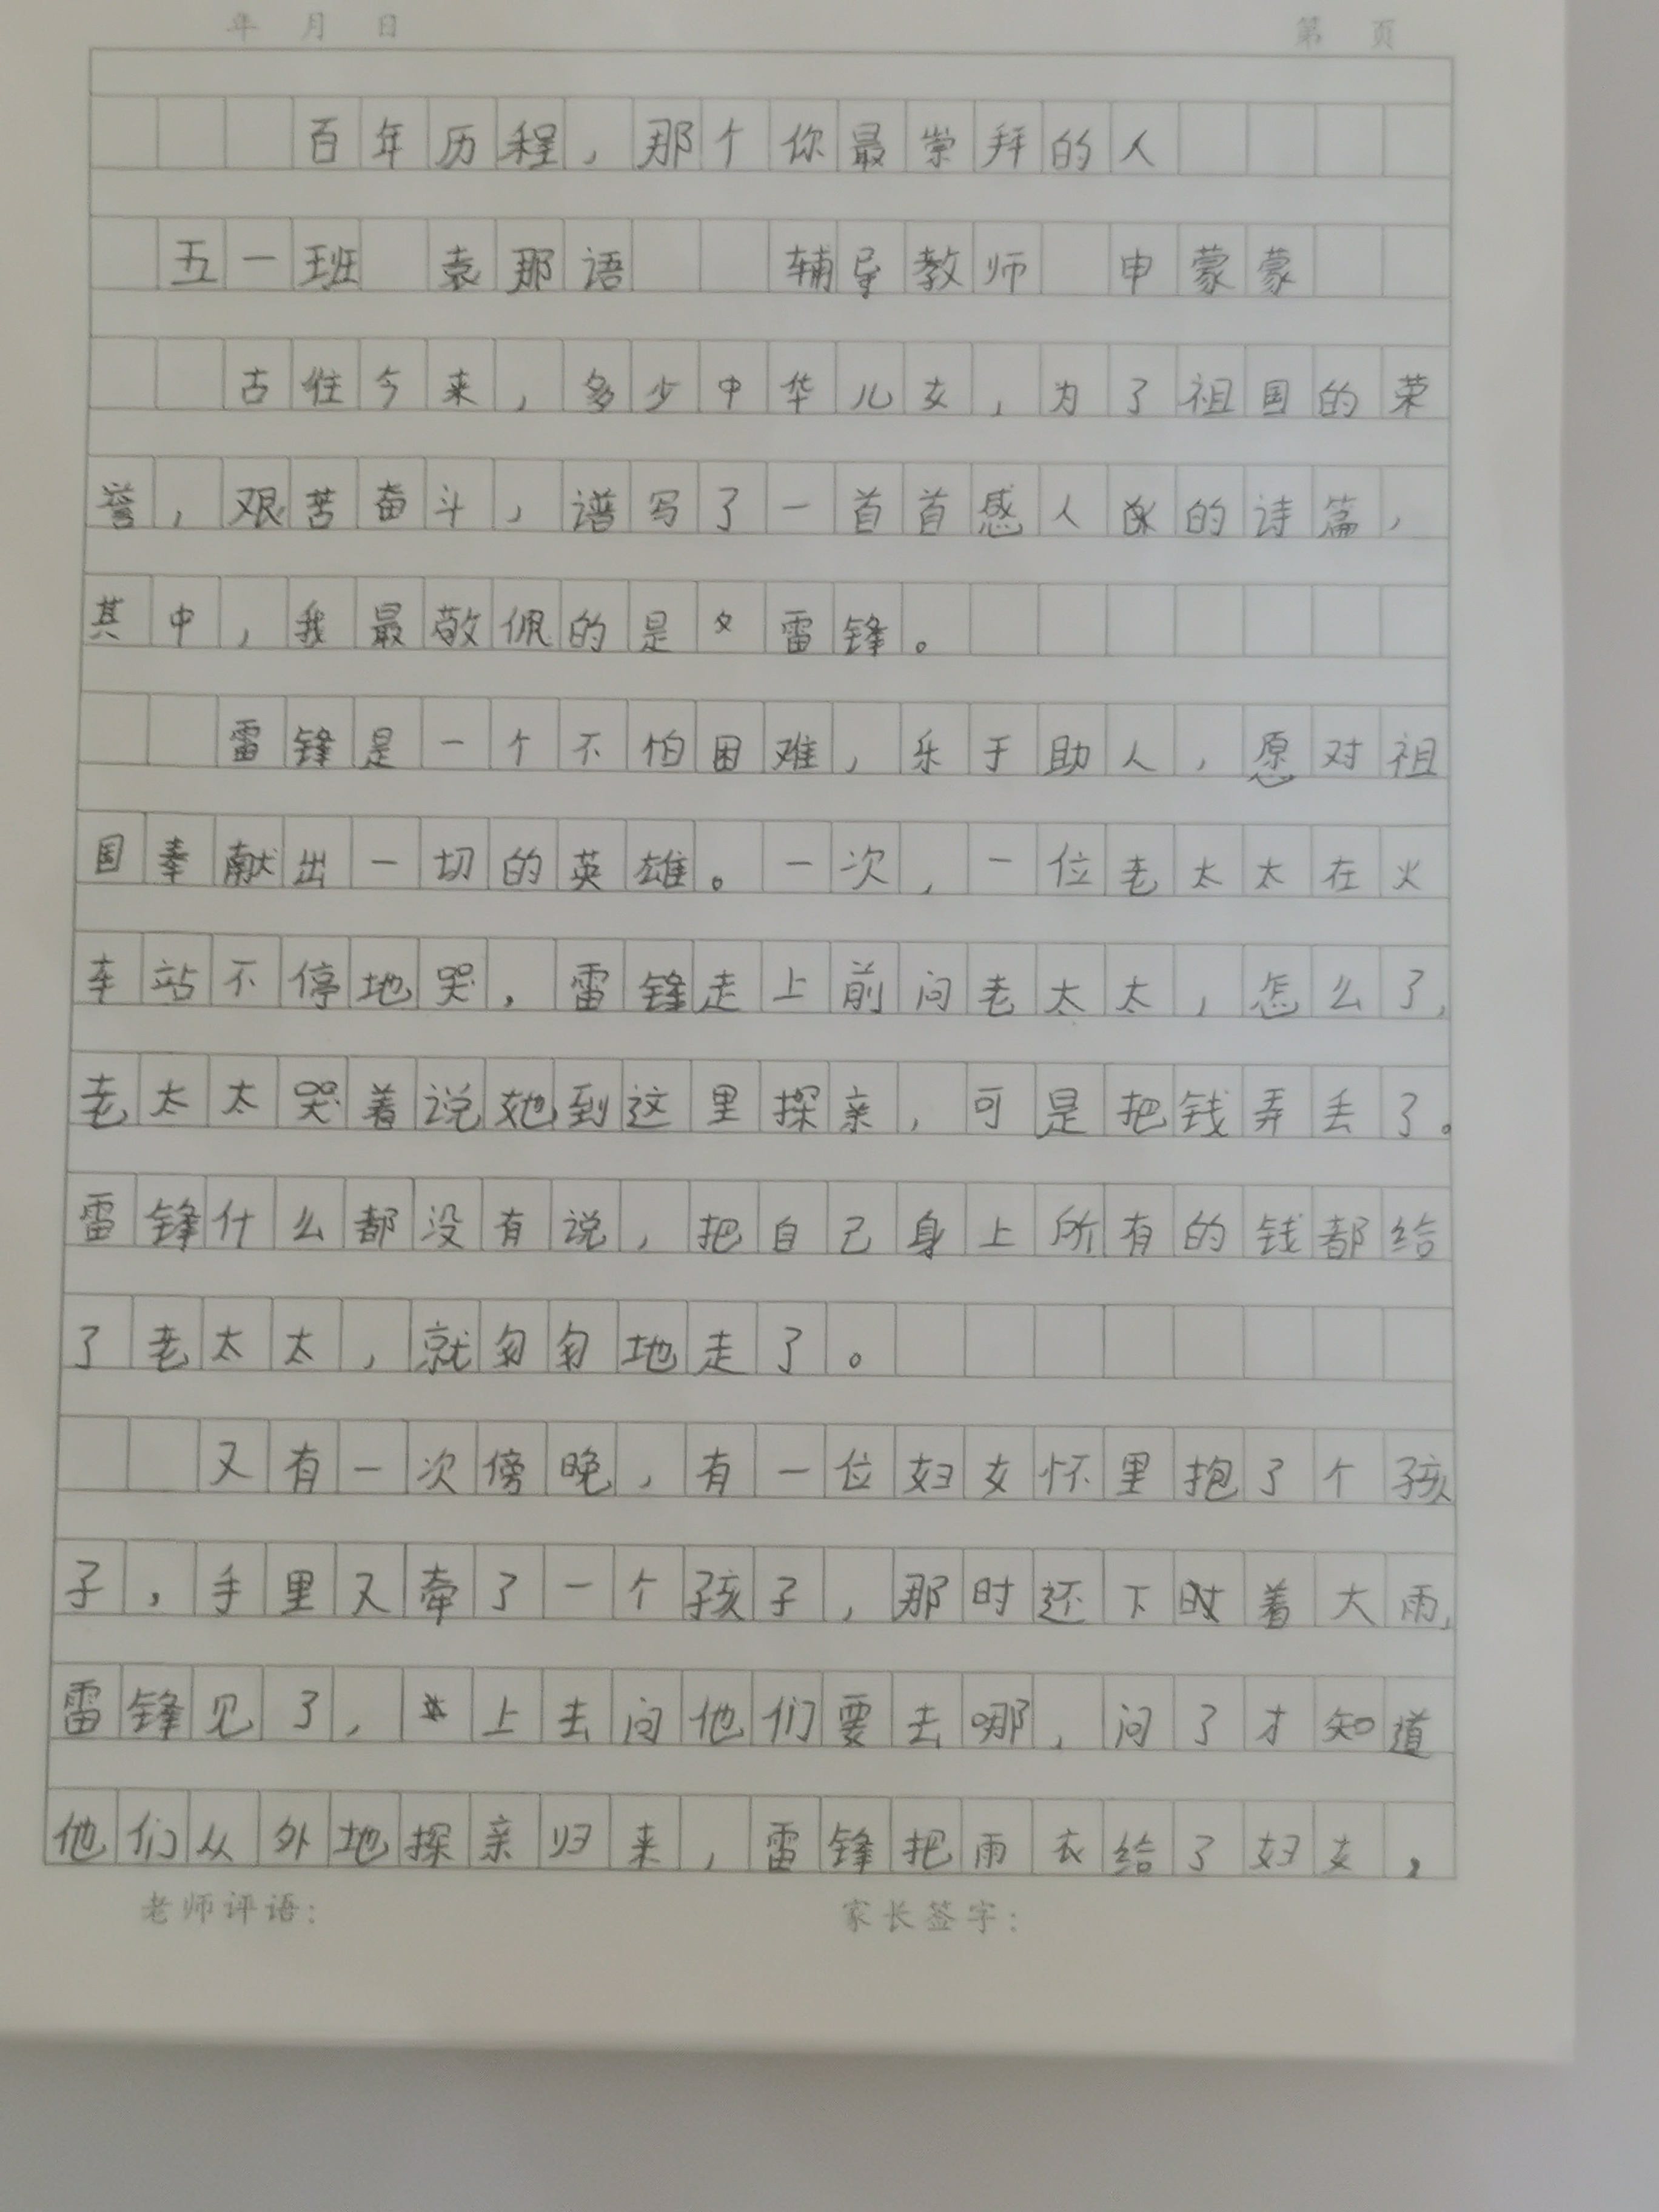 年 月 日 第 页
百年历程，那个你最崇拜的人
五一班 袁那语 辅导教师 申蒙蒙
古往今来，多少中华儿女，为了祖国的荣
誉，艰苦奋斗，谱写了一首首感人的诗篇，
其中，我最敬佩的是雷锋。
雷锋是一个不怕困难，乐于助人，愿对祖
国奉献出一切的英雄。一次，一位老太太在火
车站不停地哭，雷锋走上前问老太太，怎么了，
老太太哭着说她到这里探亲，可是把钱弄丢了。
雷锋什么都没有说，把自己身上所有的钱都给
了老太太，就匆匆地走了。
又有一次傍晚，有一位妇女怀里抱了个孩
子，手里又牵了一个孩子，那时还下着大雨，
雷锋见了，上去问他们要去哪，问了才知道
他们从外地探亲归来，雷锋把雨衣给了妇女，
老师评语： 家长签字：